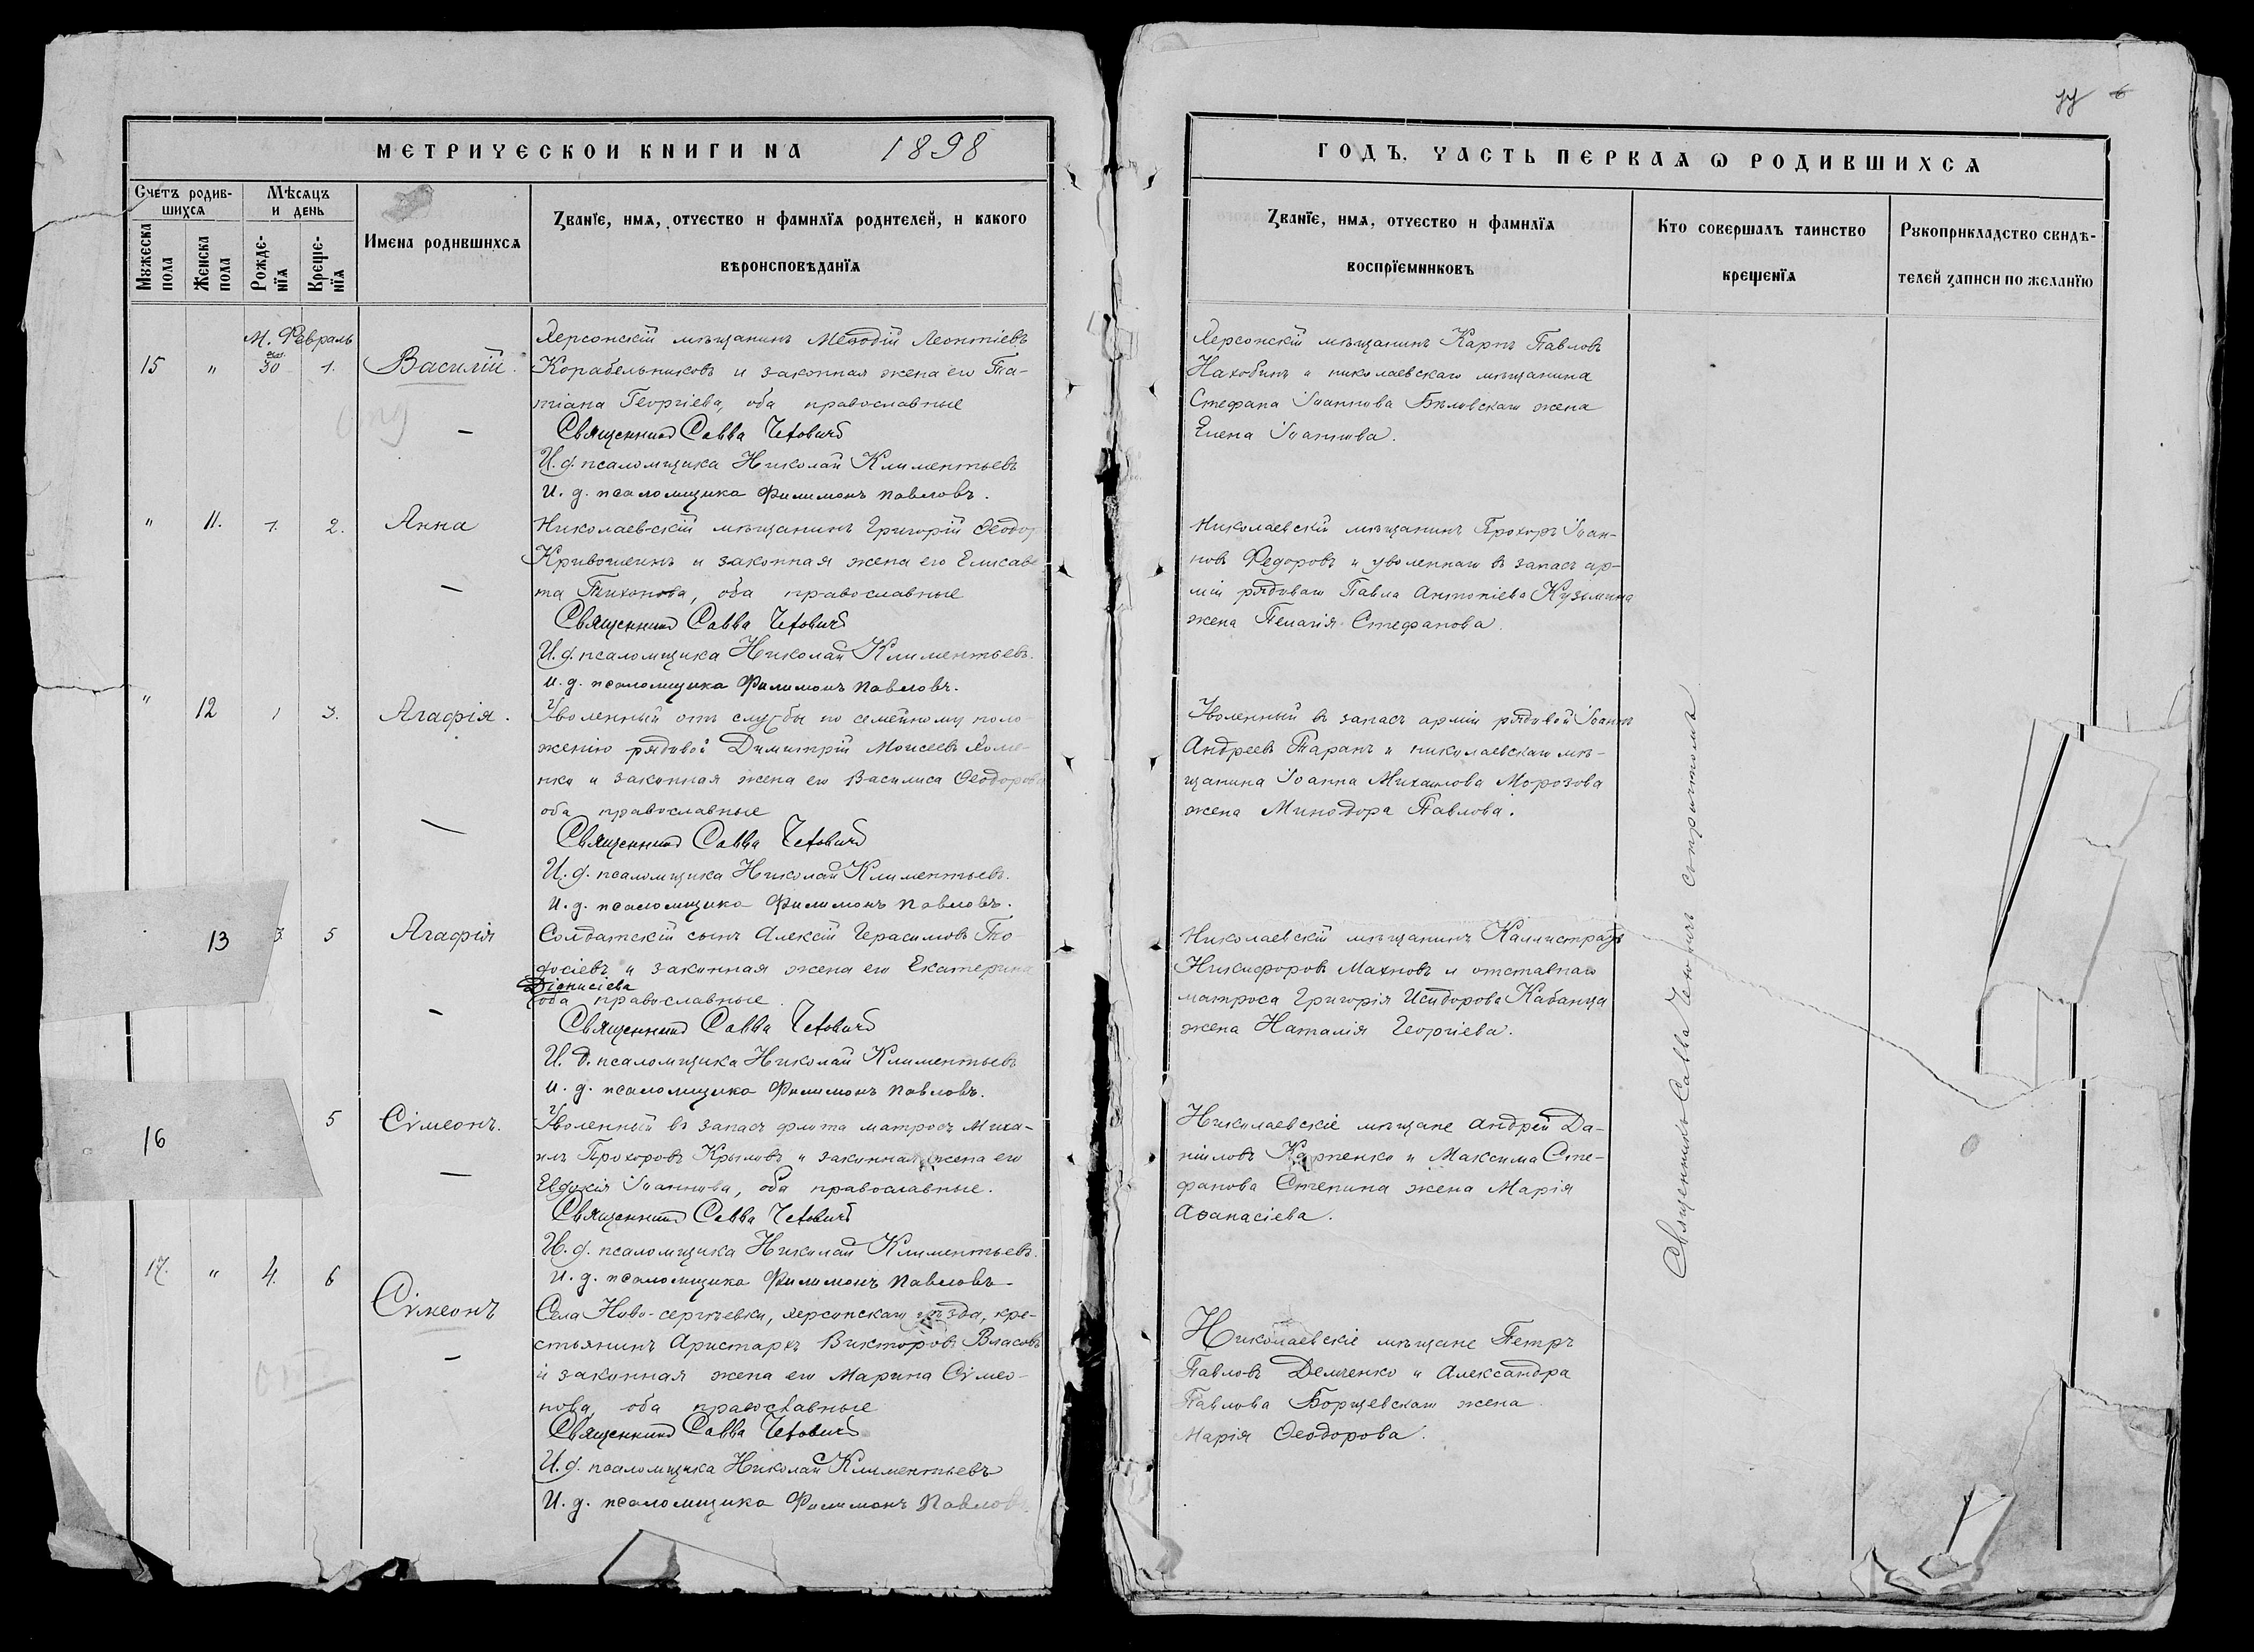 МЕТРИЧЕСКОЙ КНИГИ НА 1898
Счетъ родив-
шихся
Мѣсяцъ
и день
Мужеска
пола
Женска
пола
Рожде-
нїя
Креще-
нїя
Имена родившихся
Званїе, имя, отчество и фамилїя родителей, и какого
вѣроисповѣданїя
М. Февраль
15 " 30 1. Василій.
Херсонскій мѣщанинъ Меѳодій Леонтіевъ
Корабельниковъ и законная жена его Та-
тіана Георгіева, оба православные
Священникъ Савва
И. д. псаломщика Николай Климентьевъ
И. д. псаломщика Филимонъ Павловъ.
" 11. 1. 2. Анна
Николаевскій мѣщанинъ Григорій Ѳеодор
Кривошеинъ и законная жена его Елисаве-
та Тихонова, оба православные
Священникъ Савва
И. д. псаломщика Николай Климентьевъ.
И. д. псаломщика Филимонъ Павловъ.
" 12 1 3. Агафія.
Уволенный отъ службы по семейному поло-
женію рядовой Димитрій Моисеевъ Хоме-
нко и законная жена его Василиса Ѳеодорова
оба православные
Священникъ Савва
И. д. псаломщика Николай Климентьевъ.
И. д. псаломщика Филимонъ Павловъ.
13 3. 5 Агафія
Солдатскій сынъ Алексій Герасимовъ
и законная жена его Екатерина
Діонисіева
оба православные.
Священникъ Савва
И. д. псаломщика Николай Климентьевъ
И. д. псаломщика Филимонъ Павловъ.
16 5 Сѵмеонъ.
Уволенный въ запасъ флота матросъ Миха-
илъ Прохоровъ Крыловъ и законная жена его
Евдокія Іоаннова, оба православные.
Священникъ Савва
И. д. псаломщика Николай Климентьевъ.
И. д. псаломщика Филимонъ Павловъ.
17. " 4. 6 Сѵмеонъ
Села Ново-сергѣевки, херсонскаго уѣзда, кре-
стьянинъ Аристархъ Викторовъ Власовъ
и законная жена его Марина Сѵмео-
нова, оба православные
Священникъ Савва
И. д. псаломщика Николай Климентьевъ
И. д. псаломщика Филимонъ Павловъ.
ГОДЪ, ЧАСТЬ ПЕРВАЯ Ѡ РОДИВШИХСЯ
Званїе, имя, отчество и фамилїя
воспрїемниковъ
Кто совершалъ таинство
крещенїя
Рукоприкладство свидѣ-
телей записи по желанїю
Херсонскій мѣщанинъ Карпъ Павловъ
Находинъ и николаевскаго мѣщанина
Стефана Іоаннова Бѣловскаго жена
Елена Іоаннова.
Николаевскій мѣщанинъ Прохоръ Іоан-
новъ Федоровъ и уволеннаго въ запасъ ар-
міи рядоваго Павла Антоніева Кузьмина
жена Пелагія Стефанова.
Уволенный въ запасъ арміи рядовой Іоаннъ
Андреевъ Таранъ и николаевскаго мѣ-
щанина Іоанна Михаилова Морозова
жена Минодора Павлова.
Николаевскій мѣщанинъ Каллистратъ
Никифоровъ Махновъ и отставнаго
матроса Григорія Исидорова Кабанца
жена Наталія Георгіева.
Николаевскіе мѣщане Андрей Да-
ніиловъ Карпенко и Максима Сте-
фанова Степина жена Марія
Аѳанасіева.
Николаевскіе мѣщане Петръ
Павловъ Демченко и Александра
Павлова Борщевскаго жена
Марія Ѳеодорова.
Священникъ Савва